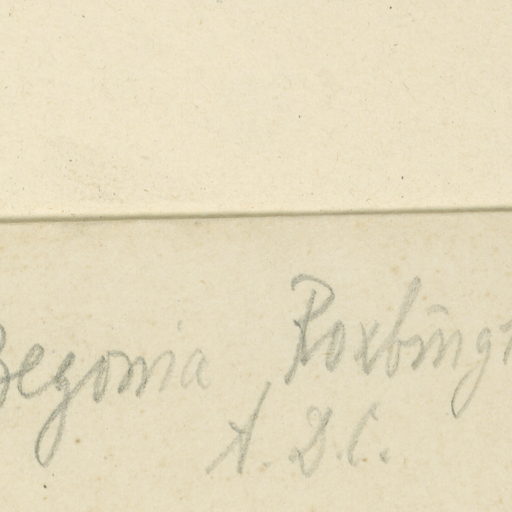 Begonia Roxburg
A. D.C.